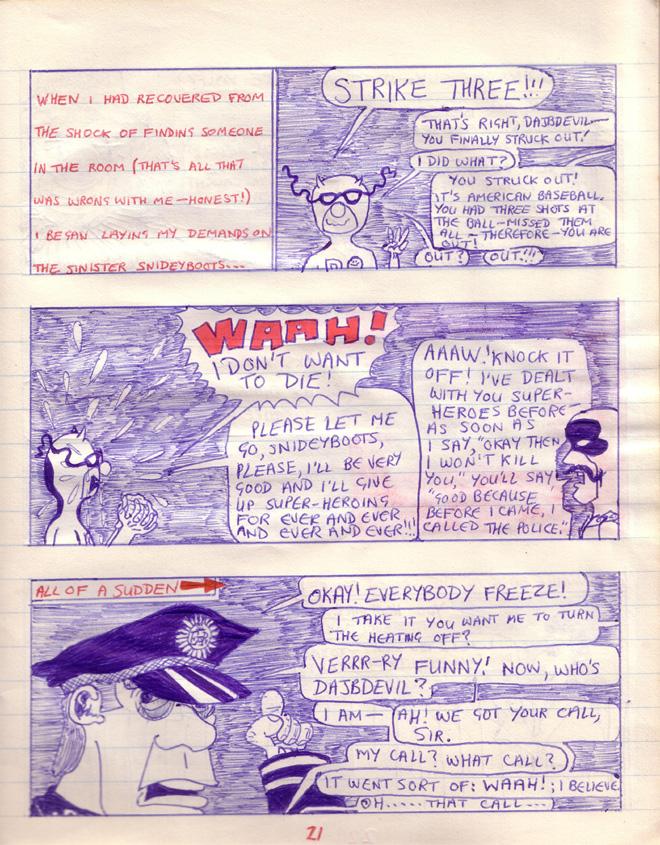 WHEN I HAD RECOVERED FROM
THE SHOCK OF FINDING SOMEONE
IN THE ROOM (THAT'S ALL THAT
WAS WRONG WITH ME—HONEST!)
I BEGAN LAYING MY DEMANDS ON
THE SINISTER SNIDEYBOOTS...
STRIKE THREE!!!
THAT'S RIGHT, DAJBDEVIL—
YOU FINALLY STRUCK OUT!
I DID WHAT?
YOU STRUCK OUT!
IT'S AMERICAN BASEBALL.
YOU HAD THREE SHOTS AT
THE BALL—MISSED THEM
ALL—THEREFORE—YOU ARE
OUT!
OUT?
OUT!!!
WAAH!
I DON'T WANT
TO DIE!
PLEASE LET ME
GO, SNIDEYBOOTS,
PLEASE, I'LL BE VERY
GOOD AND I'LL GIVE
UP SUPER-HEROING
FOR EVER AND EVER
AND EVER AND EVER!!!
AAAW! KNOCK IT
OFF! I'VE DEALT
WITH YOU SUPER-
HEROES BEFORE—
AS SOON AS
I SAY, "OKAY THEN
I WON'T KILL
YOU," YOU'LL SAY
"GOOD BECAUSE
BEFORE I CAME, I
CALLED THE POLICE."
ALL OF A SUDDEN
OKAY! EVERYBODY FREEZE!
I TAKE IT YOU WANT ME TO TURN
THE HEATING OFF?
VERRR-RY FUNNY! NOW, WHO'S
DAJBDEVIL?
I AM—
AH! WE GOT YOUR CALL,
SIR.
MY CALL? WHAT CALL?
IT WENT SORT OF: WAAH!; I BELIEVE
OH..... THAT CALL...
21